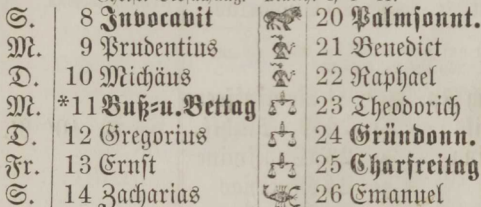 S. 8 Invocavit 20 Palmsonnt.
M. 9 Prudentius 21 Benedict
D. 10 Michäus 22 Raphael
M. *11 Buß=u. Bettag 23 Theodorich
D. 12 Gregorius 24 Gründonn.
Fr. 13 Ernst 25 Charfreitag
S. 14 Zacharias 26 Emanuel